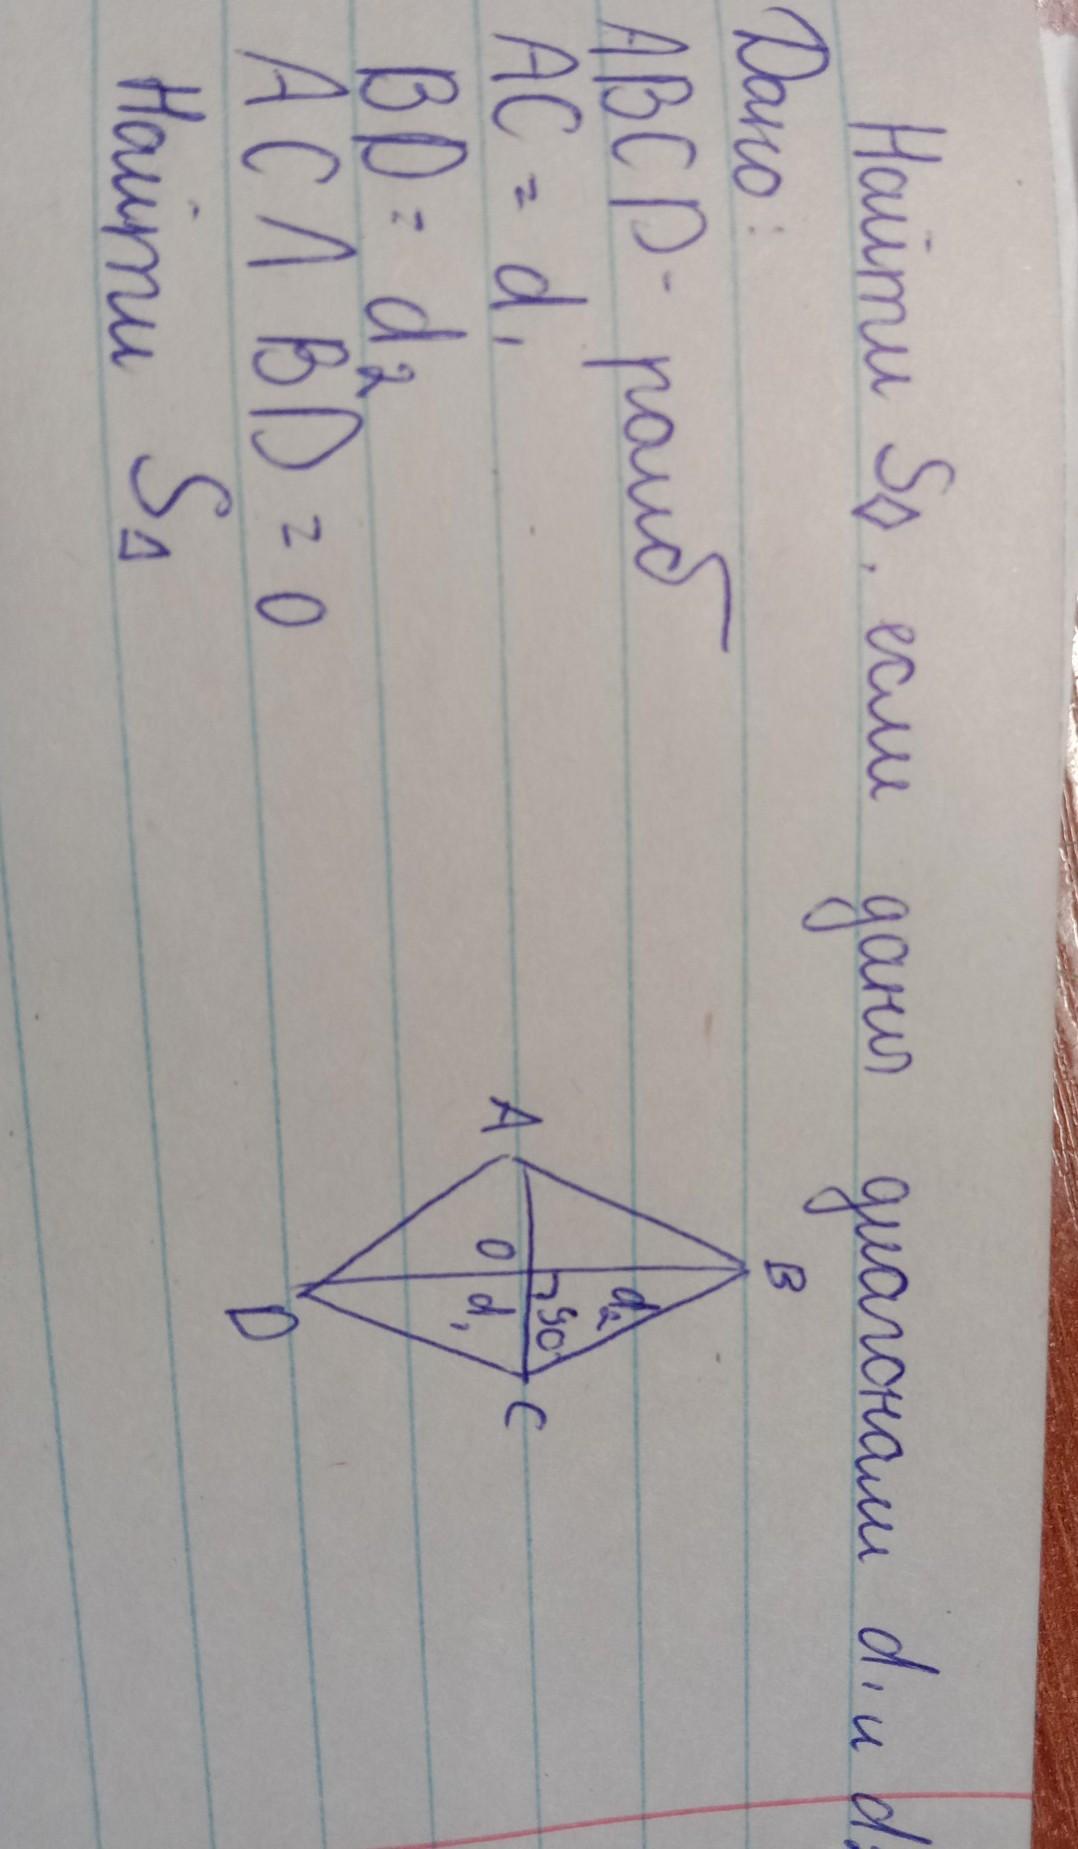 Найти S◊, если даны диагонали d₁ и d₂
Дано:
ABCD - ромб
AC = d₁
BD = d₂
AC ∧ BD = O
Найти S△
B
d₂
90°
A
O
d₁
C
D